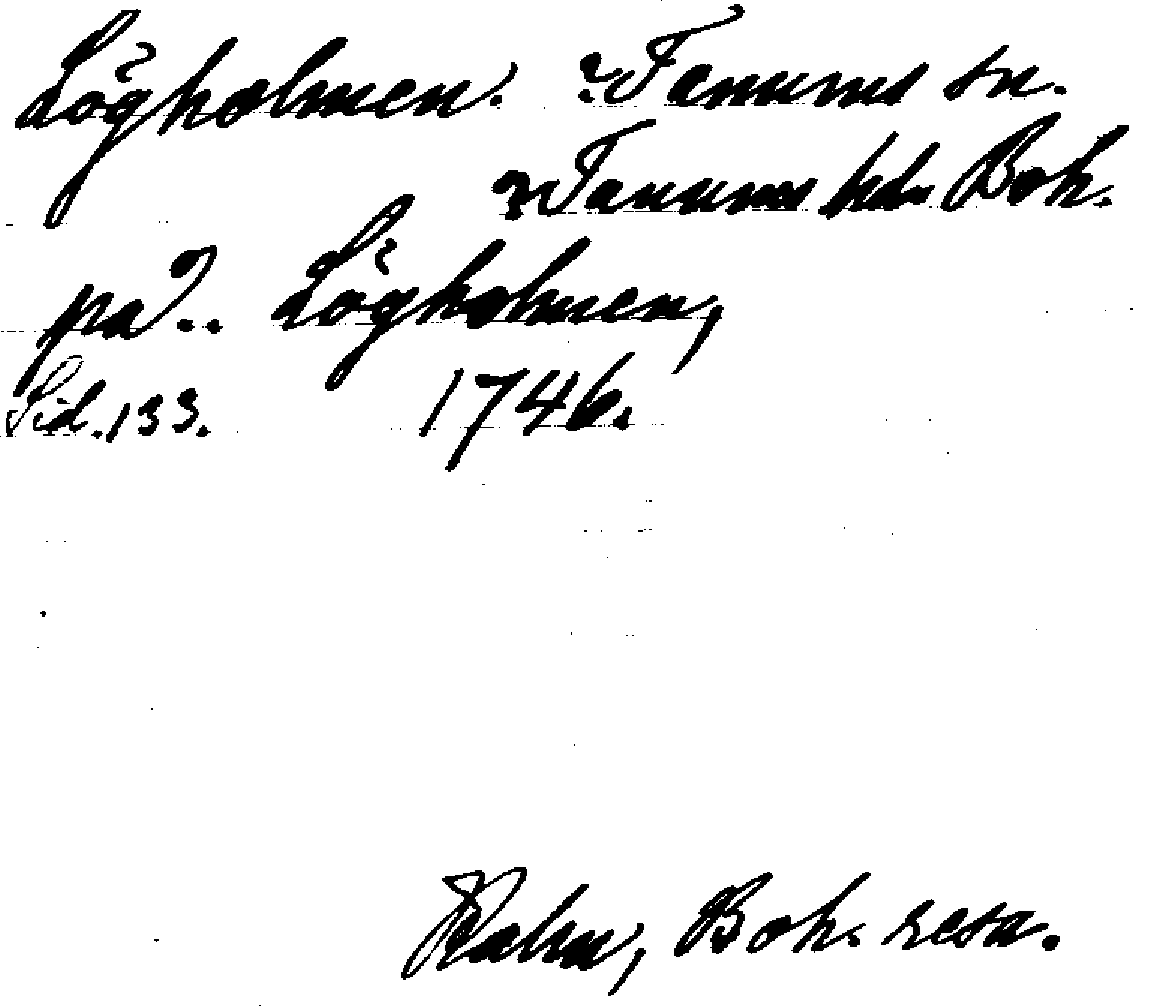 Lögholmen. ? Tanums sn.
? Tanums hd. Boh.
på.. Lögholmen,
Sid. 133. 1746.
Kalm, Boh. resa.